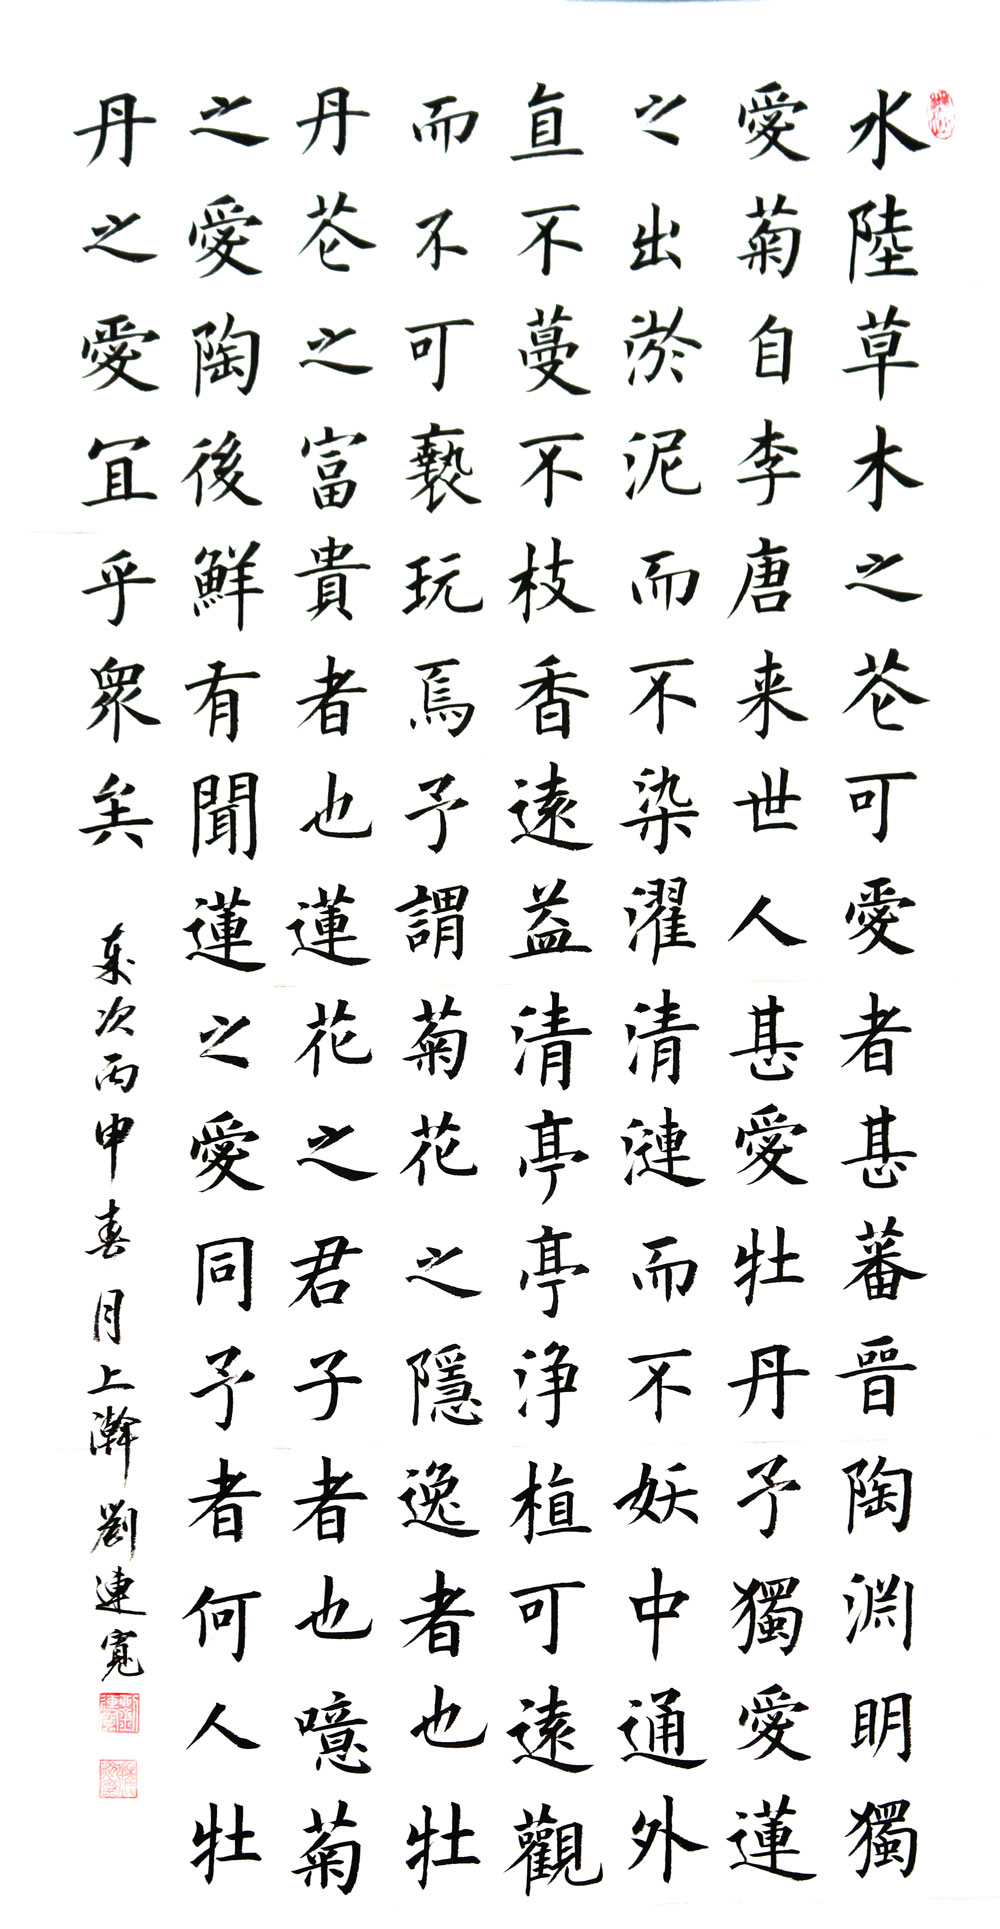 水陸草木之花可愛者甚蕃晉陶淵明獨
愛菊自李唐来世人甚愛牡丹予獨愛蓮
之出淤泥而不染濯清漣而不妖中通外
直不蔓不枝香遠益清亭亭浄植可遠觀
而不可褻玩焉予謂菊花之隱逸者也牡
丹花之富貴者也蓮花之君子者也噫菊
之愛陶後鮮有聞蓮之愛同予者何人牡
丹之愛宜乎衆矣
歲次丙申春月上澣劉連寬